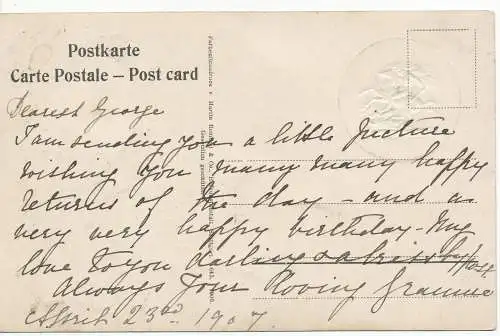 Postkarte
Carte Postale – Post card
Dearest George
I am sending you a little picture
wishing you many many happy
returns of the day – and a
very very happy birthday – My
love to you darling & a kiss
Always your loving Grannie
April 23rd 1907.